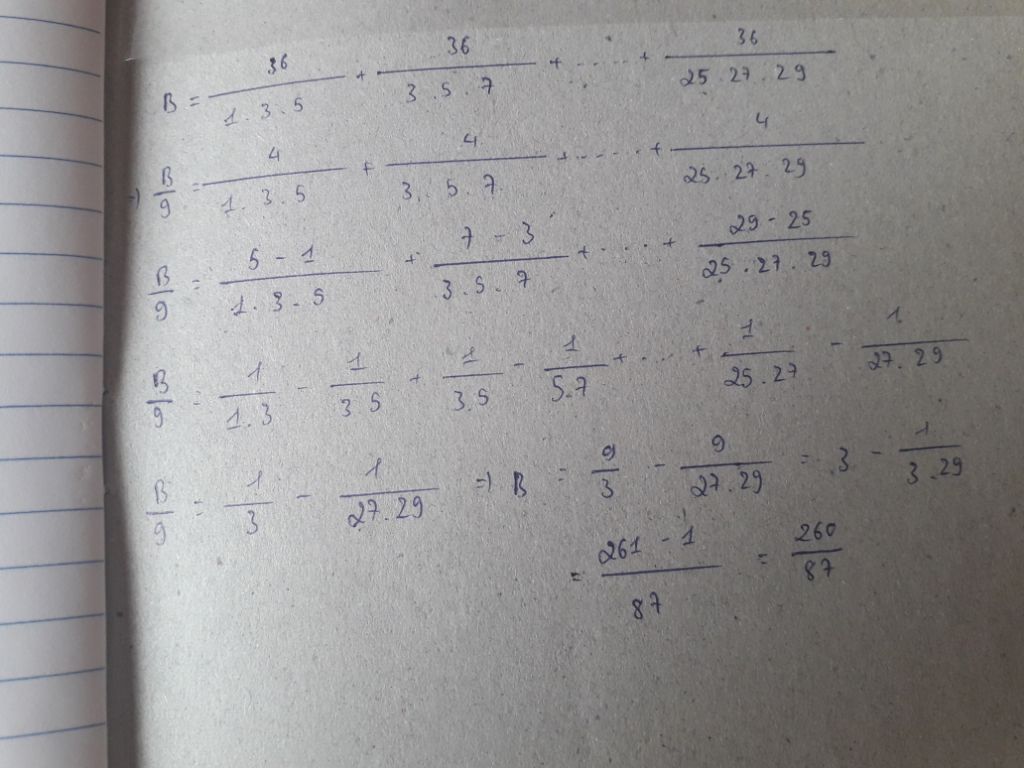 B = 36/(1.3.5) + 36/(3.5.7) + ..... + 36/(25.27.29)
=) B/9 = 4/(1.3.5) + 4/(3.5.7) + ..... + 4/(25.27.29)
B/9 = (5-1)/(1.3.5) + (7-3)/(3.5.7) + ..... + (29-25)/(25.27.29)
B/9 = 1/(1.3) - 1/(3 5) + 1/(3.5) - 1/(5.7) + ..... + 1/(25.27) - 1/(27.29)
B/9 = 1/3 - 1/(27.29) =) B = 9/3 - 9/(27.29) = 3 - 1/(3.29)
= (261-1)/87 = 260/87